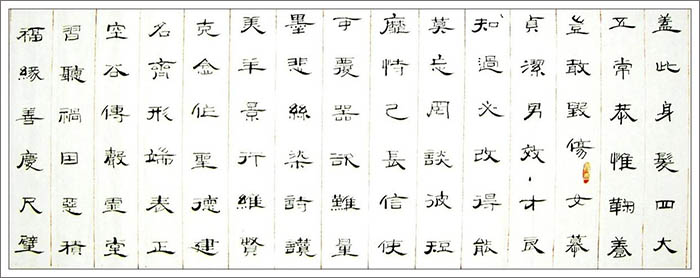 蓋此身髮四大
五常恭惟鞠養
豈敢毀傷女慕
貞潔男效才良
知過必改得能
莫忘罔談彼短
靡恃己長信使
可覆器欲難量
墨悲絲染詩讚
羔羊景行維賢
克念作聖德建
名齊形端表正
空谷傳聲虛堂
習聽禍因惡積
福緣善慶尺璧